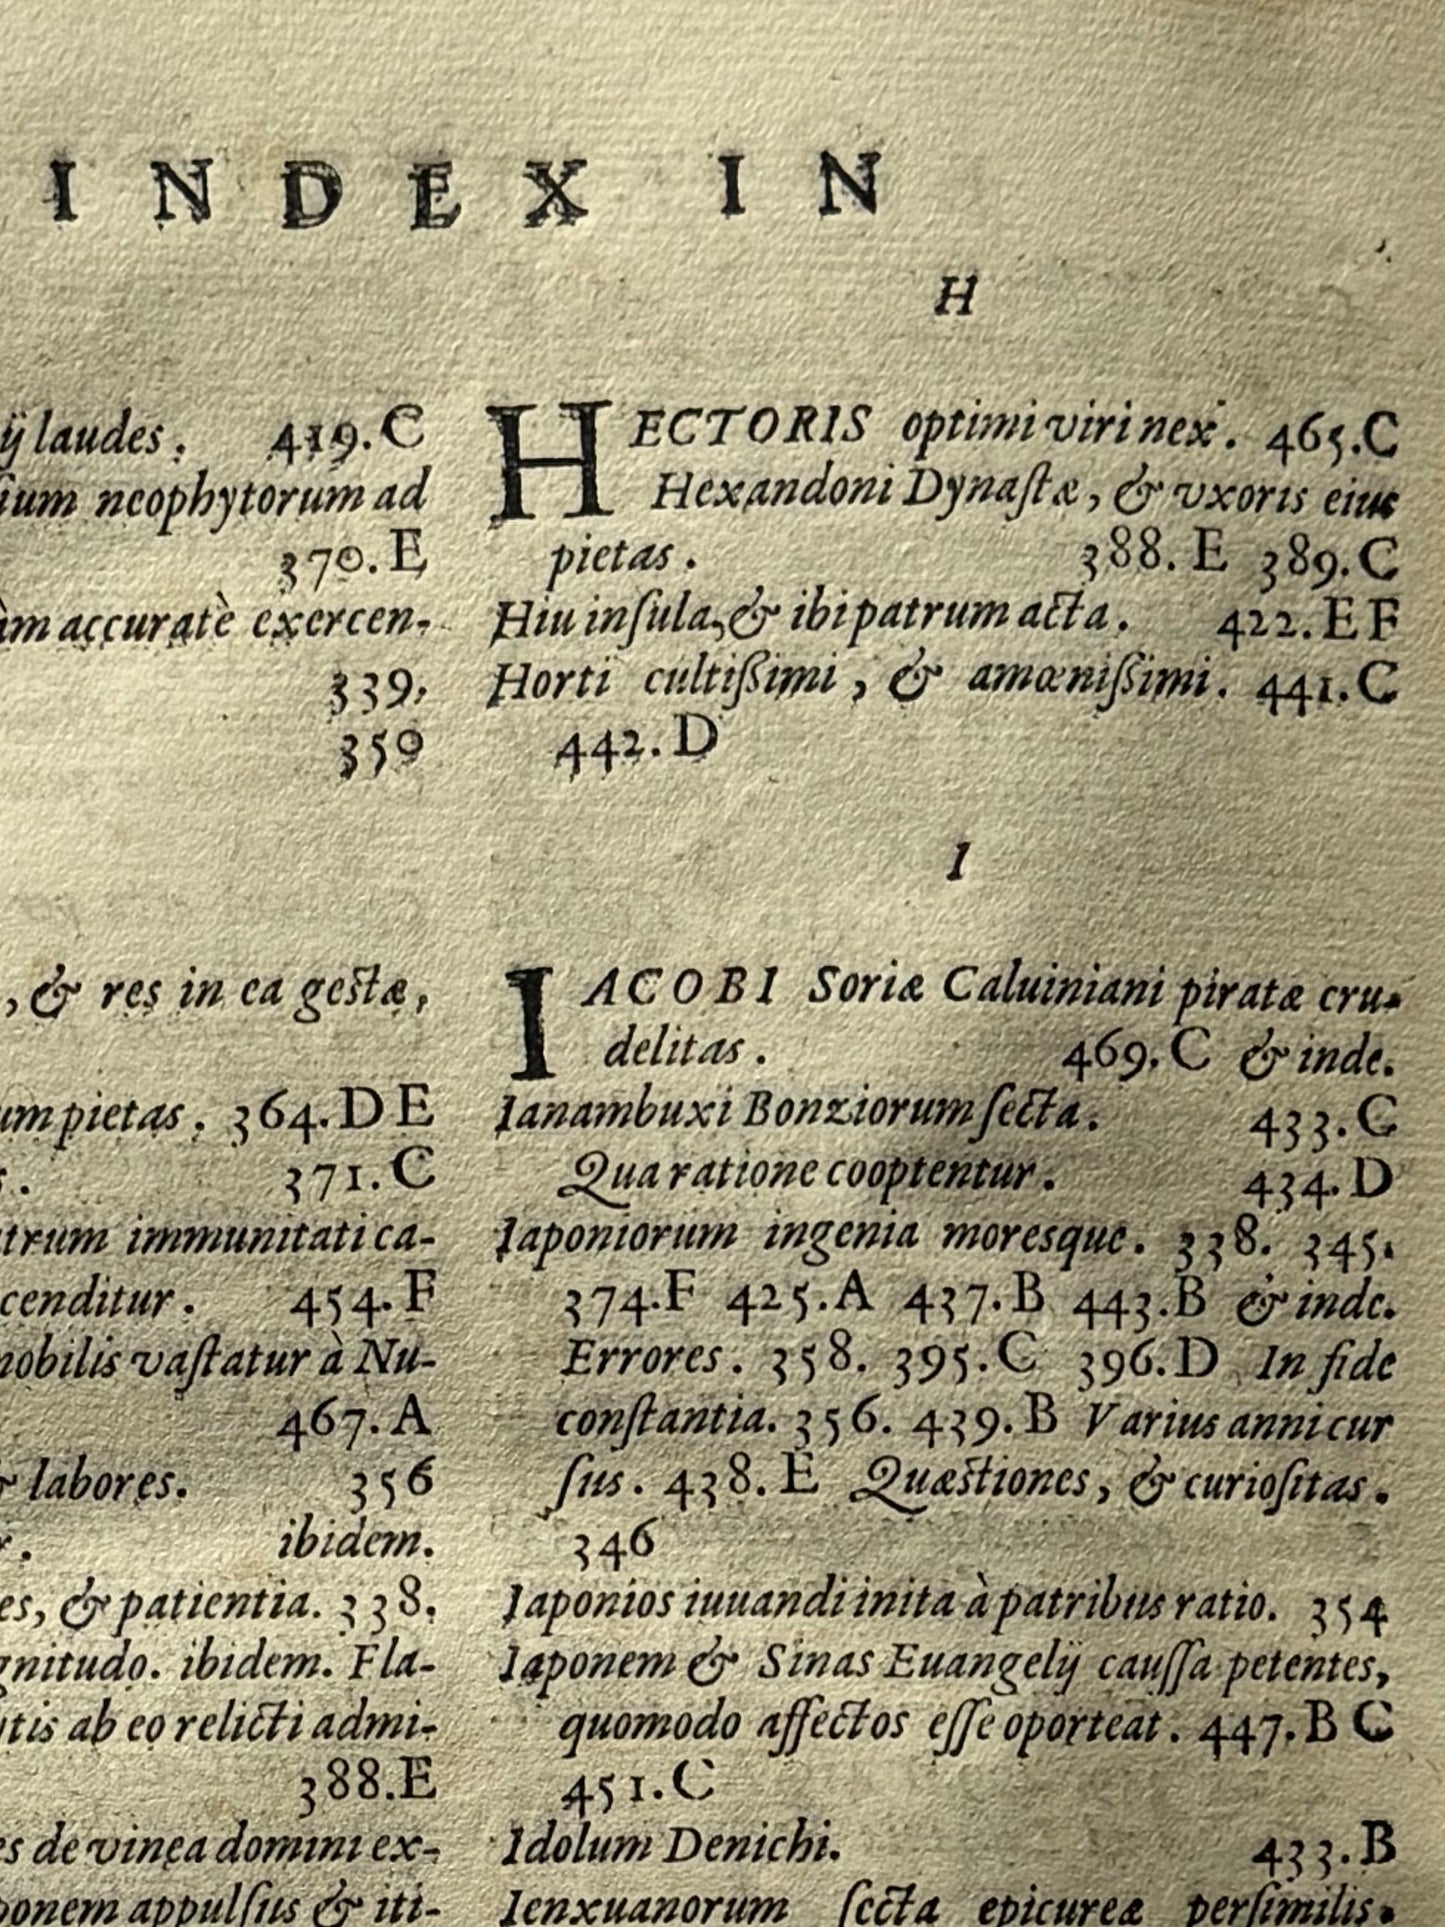 INDEX IN
ij laudes. 419.C
sium neophytorum ad
370.E
àm accuratè exercen-
339.
350
, & res in ea gestæ,
um pietas. 364.DE
371.C
trum immunitati ca-
cenditur. 454.F
nobilis vaſtatur à Nu-
467.A
& labores. 356
r. ibidem.
es, & patientia. 338.
gnitudo. ibidem. Fla-
tis ab eo relicti admi-
388.E
es de vinea domini ex-
ponem appulſus & iti-
H
HECTORIS optimi viri nex. 465.C
Hexandoni Dynaſtæ, & vxoris eius
pietas. 388.E 389.C
Hiu inſula, & ibi patrum acta. 422.EF
Horti cultiſsimi, & amœniſsimi. 441.C
442.D
I
IACOBI Soriæ Caluiniani piratæ cru-
delitas. 469.C & inde.
Ianambuxi Bonziorum ſecta. 433.C
Qua ratione cooptentur. 434.D
Iaponiorum ingenia moresque. 338. 345.
374.F 425.A 437.B 443.B & inde.
Errores. 358. 395.C 396.D In fide
conſtantia. 356. 439.B Varius anni cur
ſus. 438.E Quæstiones, & curioſitas.
346
Iaponios iuuandi inita à patribus ratio. 354
Iaponem & Sinas Euangelij cauſſa petentes,
quomodo affectos eſſe oporteat. 447.BC
451.C
Idolum Denichi. 433.B
Ienxuanorum ſecta epicureæ perſimilis.